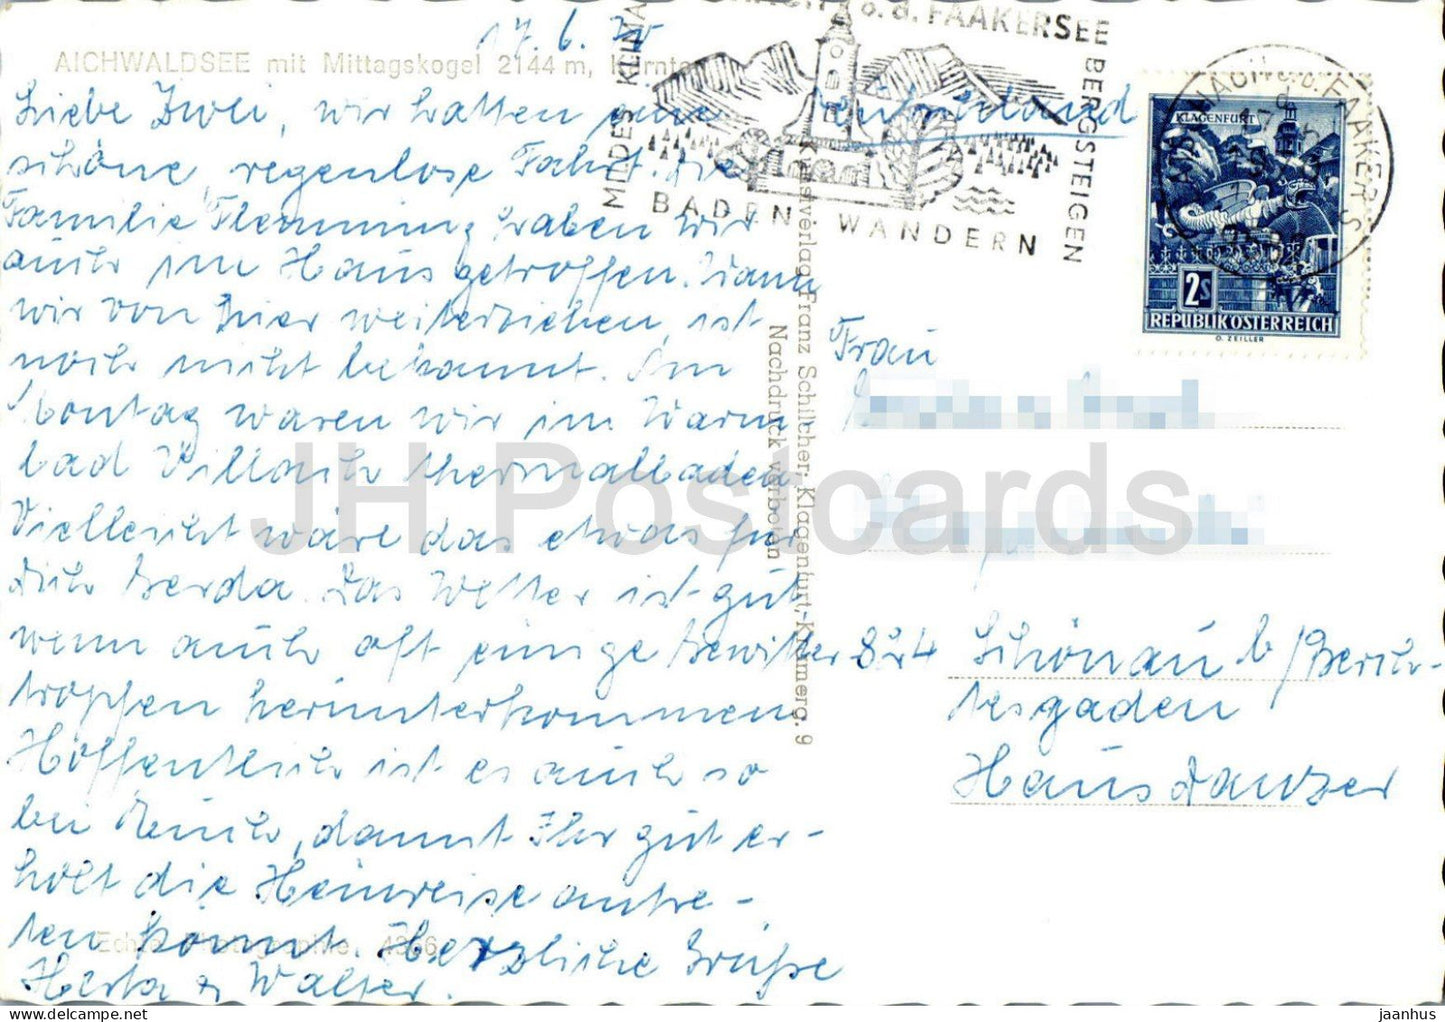 17.6.70
AICHWALDSEE mit Mittagskogel 2144 m, Kärnten
Liebe Zwei, wir hatten eine
schöne, regenlose Fahrt. Die
Familie Flemming haben wir
auch im Haus getroffen. Wann
wir von hier weiterziehen, ist
noch nicht bekannt. Am
Montag waren wir im Warm
bad Villach thermalbaden.
Vielleicht wäre das etwas für
Dich Gerda. Das Wetter ist gut
wenn auch oft einige Gewitter
tropfen herunterkommen
Hoffentlich ist es auch so
bei Euch, damit Ihr gut er-
holt die Heimreise antre-
ten könnt. Herzliche Grüße
Herta u. Walter.
Echte Photographie. 4366
Kunstverlag Franz Schilcher, Klagenfurt, Kramerg. 9
Nachdruck verboten
MILDES KLIMA
a. d. FAAKERSEE
BERGSTEIGEN
BADEN WANDERN
FAAKERSEE
KLAGENFURT
2S
REPUBLIK ÖSTERREICH
O. ZEILLER
Frau
824 Schönau b/Berch-
tesgaden
Haus Danzer
JH Postcards
jaanhus